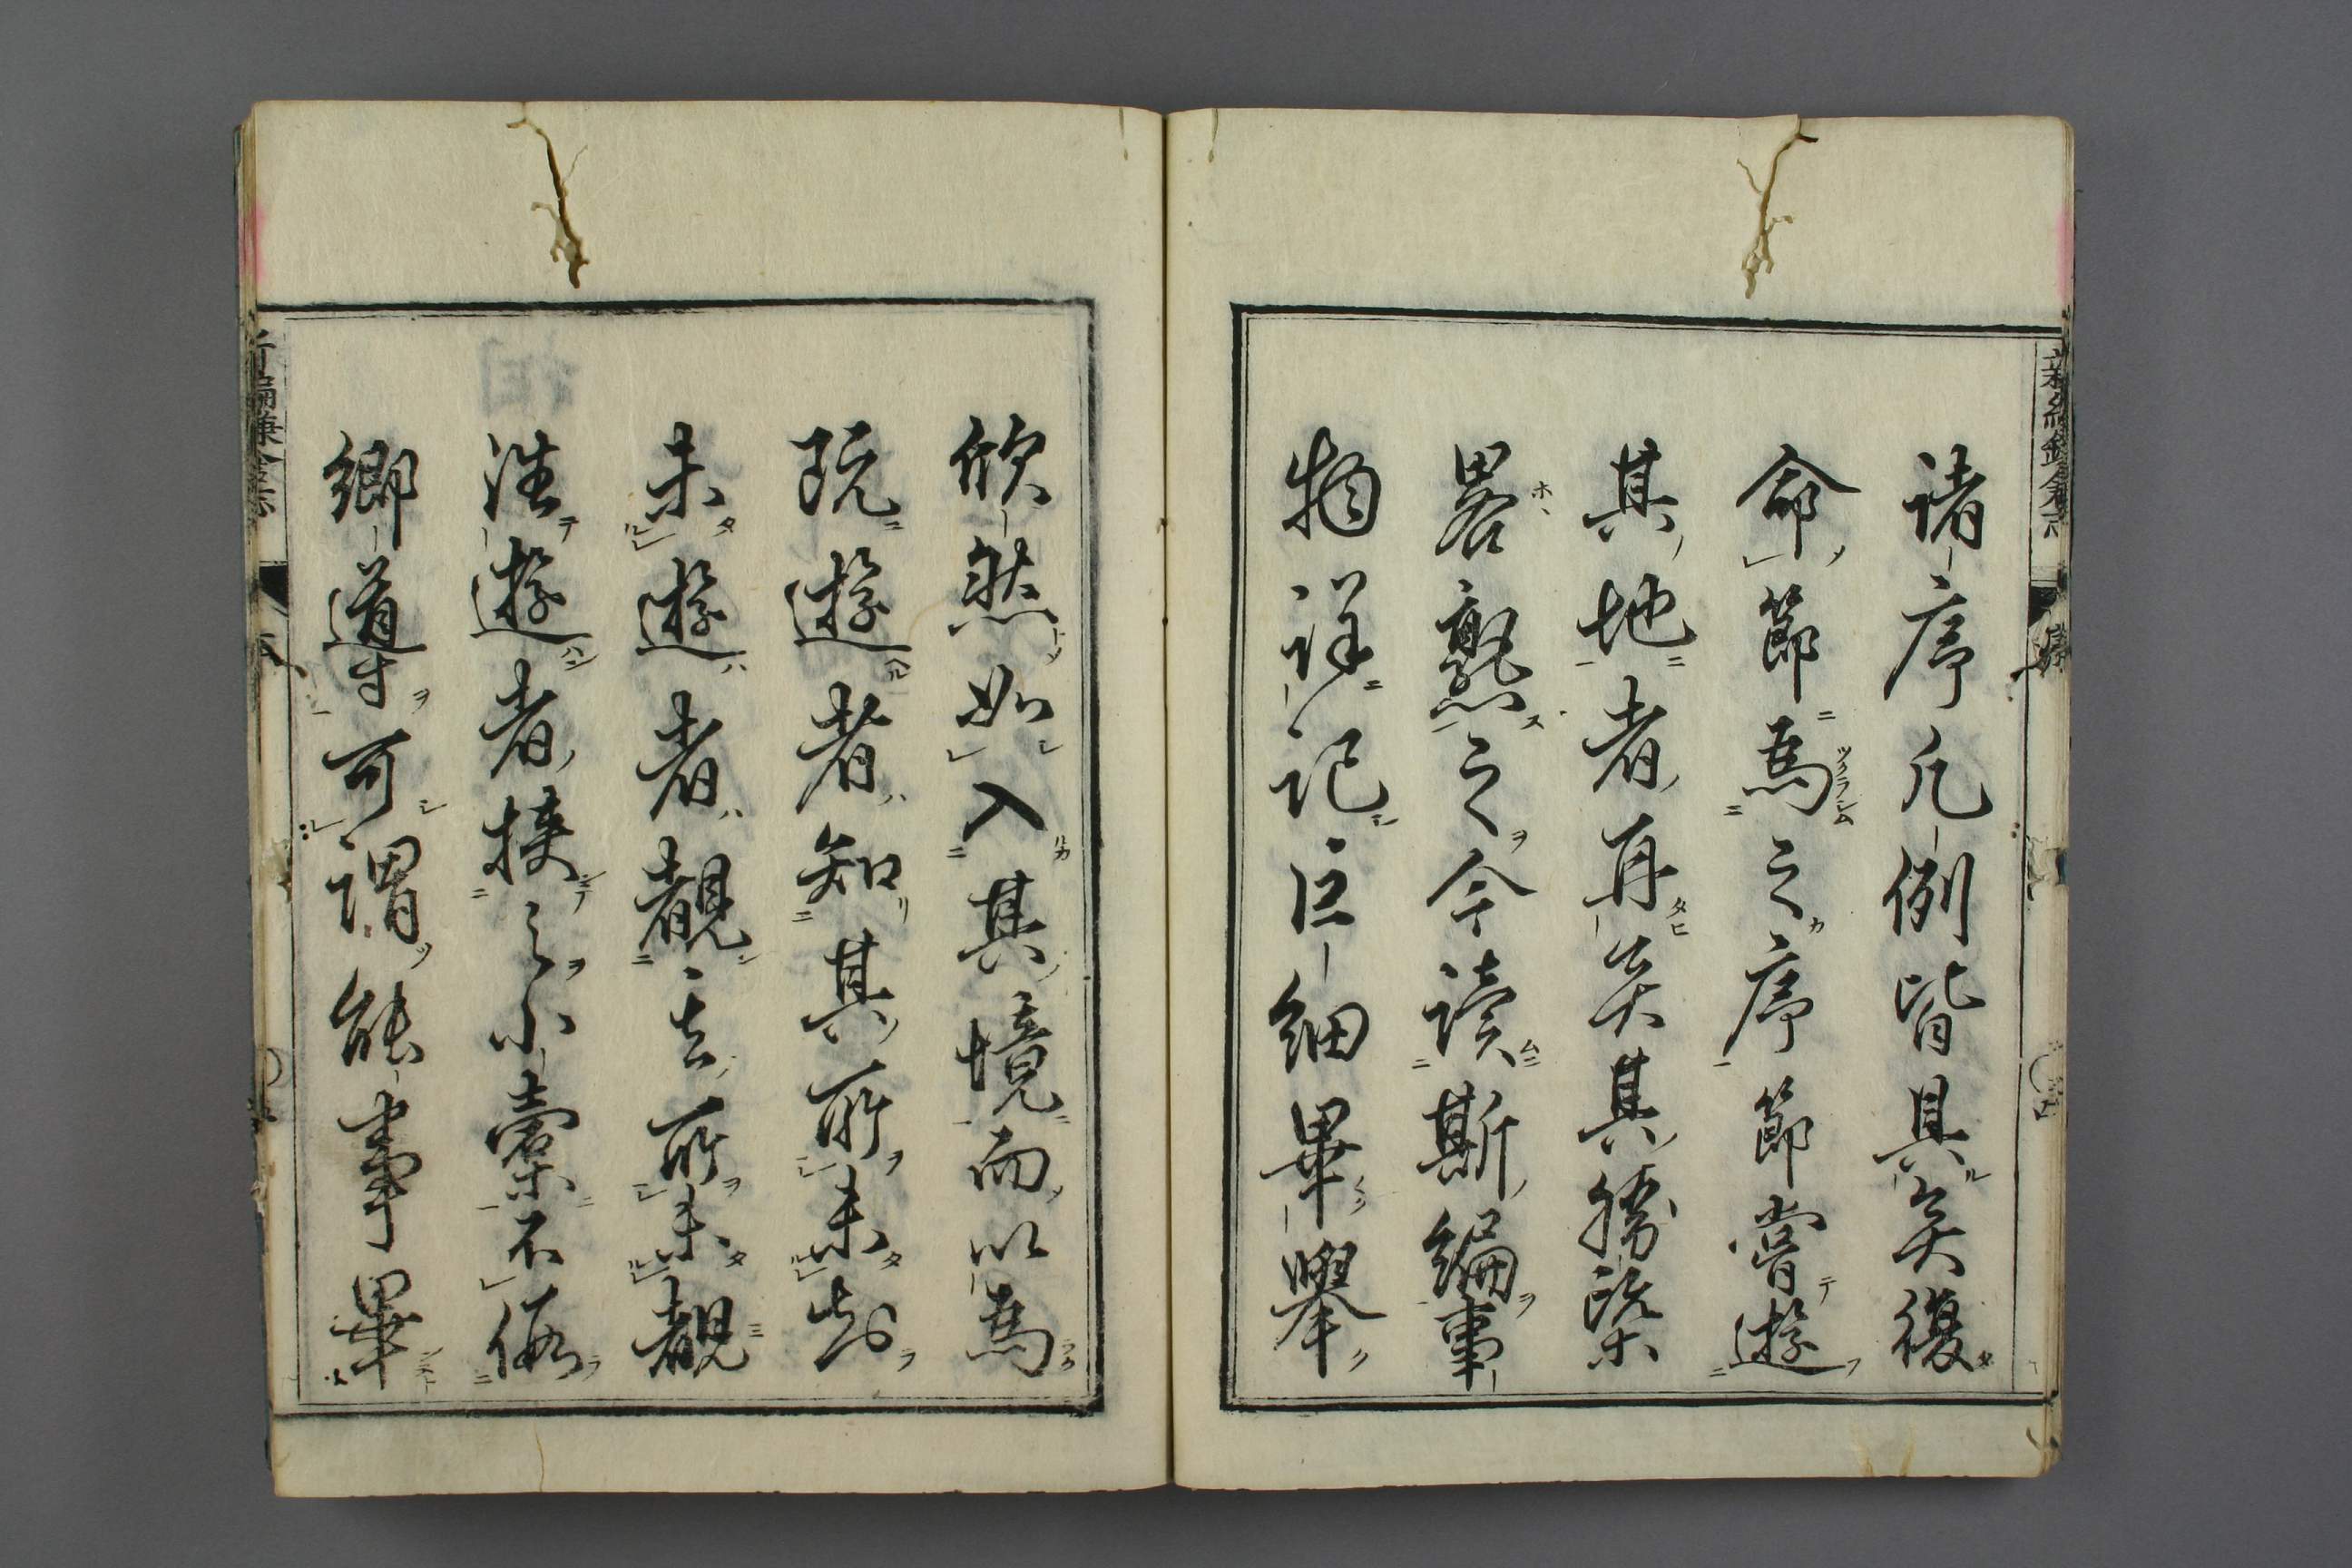 新編鎌倉志 序
諸序凡例皆具矣復
命節爲之序節嘗遊
其地者再矣其勝槩
畧熟之今讀斯編事
物詳記巨細畢擧
欣然如入其境而以爲
既遊者知其所未知
未遊者覩其所未覩
往遊者挾之小橐不假
鄉導可謂能事畢
新編鎌倉志